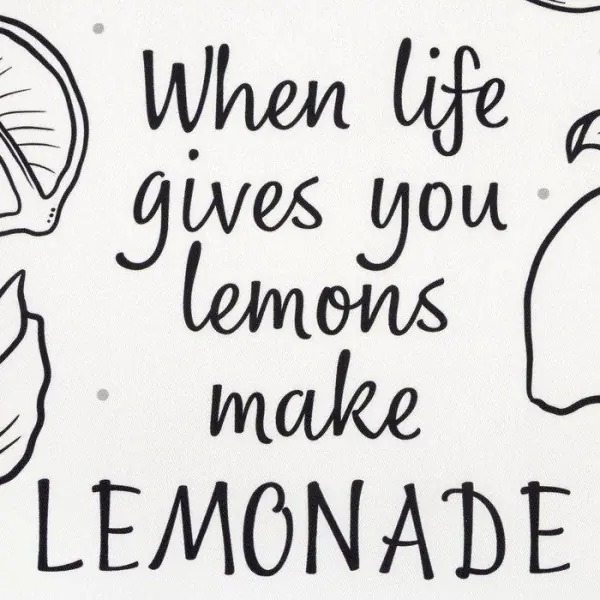 When life
gives you
lemons
make
LEMONADE